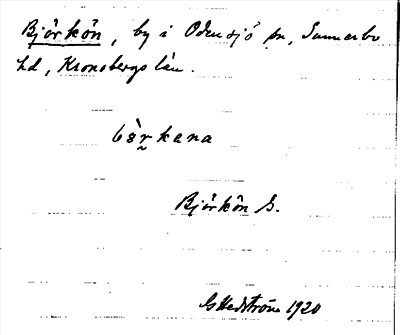 Björkön, by i Odensjö sn, Sunnerbo
hd, Kronobergs län.
bärkena
Björkön G.
G Hedström 1920